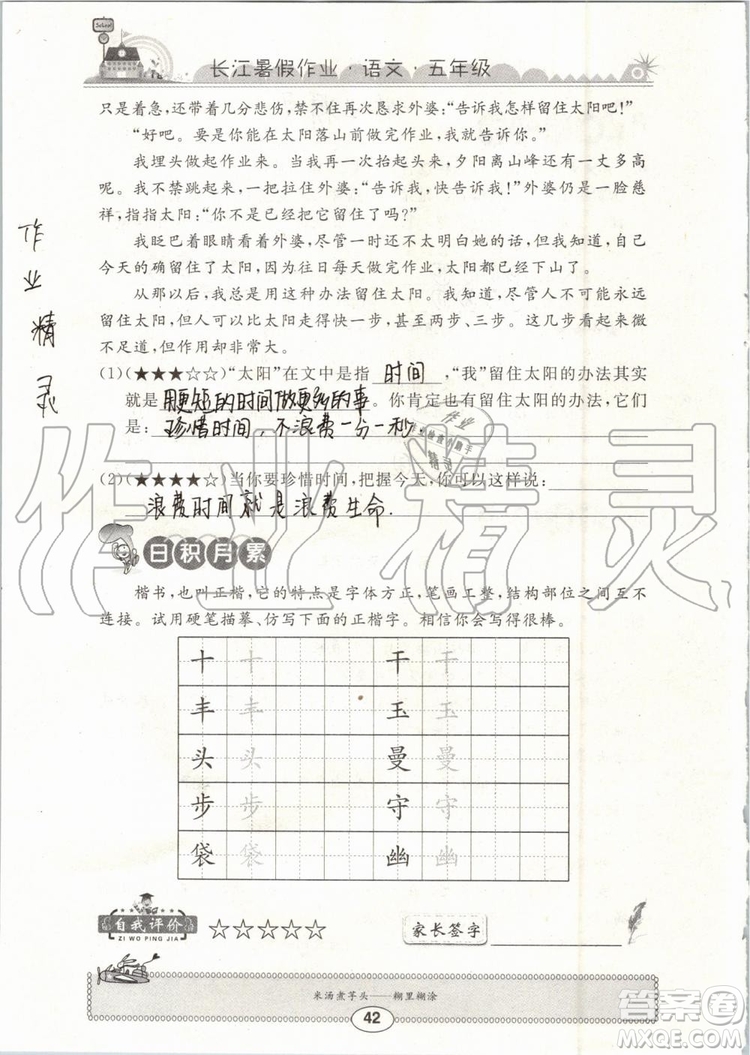 School
长江暑假作业·语文·五年级
只是着急，还带着几分悲伤，禁不住再次恳求外婆：“告诉我怎样留住太阳吧！”
“好吧。要是你能在太阳落山前做完作业，我就告诉你。”
我埋头做起作业来。当我再一次抬起头来，夕阳离山峰还有一丈多高
呢。我不禁跳起来，一把拉住外婆：“告诉我，快告诉我！”外婆仍是一脸慈
祥，指指太阳：“你不是已经把它留住了吗？”
我眨巴着眼睛看着外婆，尽管一时还不太明白她的话，但我知道，自己
今天的确留住了太阳，因为往日每天做完作业，太阳都已经下山了。
从那以后，我总是用这种办法留住太阳。我知道，尽管人不可能永远
留住太阳，但人可以比太阳走得快一步，甚至两步、三步。这几步看起来微
不足道，但作用却非常大。
作业精灵
(1)(★★★☆☆)“太阳”在文中是指 时间 ，“我”留住太阳的办法其实
就是用更短的时间做更多的事。你肯定也有留住太阳的办法，它们
是：珍惜时间，不浪费一分一秒。
(2)(★★★★☆)当你要珍惜时间，把握今天，你可以这样说：
浪费时间就是浪费生命.
日积月累
楷书，也叫正楷，它的特点是字体方正，笔画工整，结构部位之间互不
连接。试用硬笔描摹、仿写下面的正楷字。相信你会写得很棒。
十 十 干 干
丰 丰 玉 玉
头 头 曼 曼
步 步 守 守
袋 袋 幽 幽
自我评价 ☆☆☆☆☆ 家长签字
ZI WO PING JIA
米汤煮芋头——糊里糊涂
42
作业精灵
答案圈
MXQE.COM